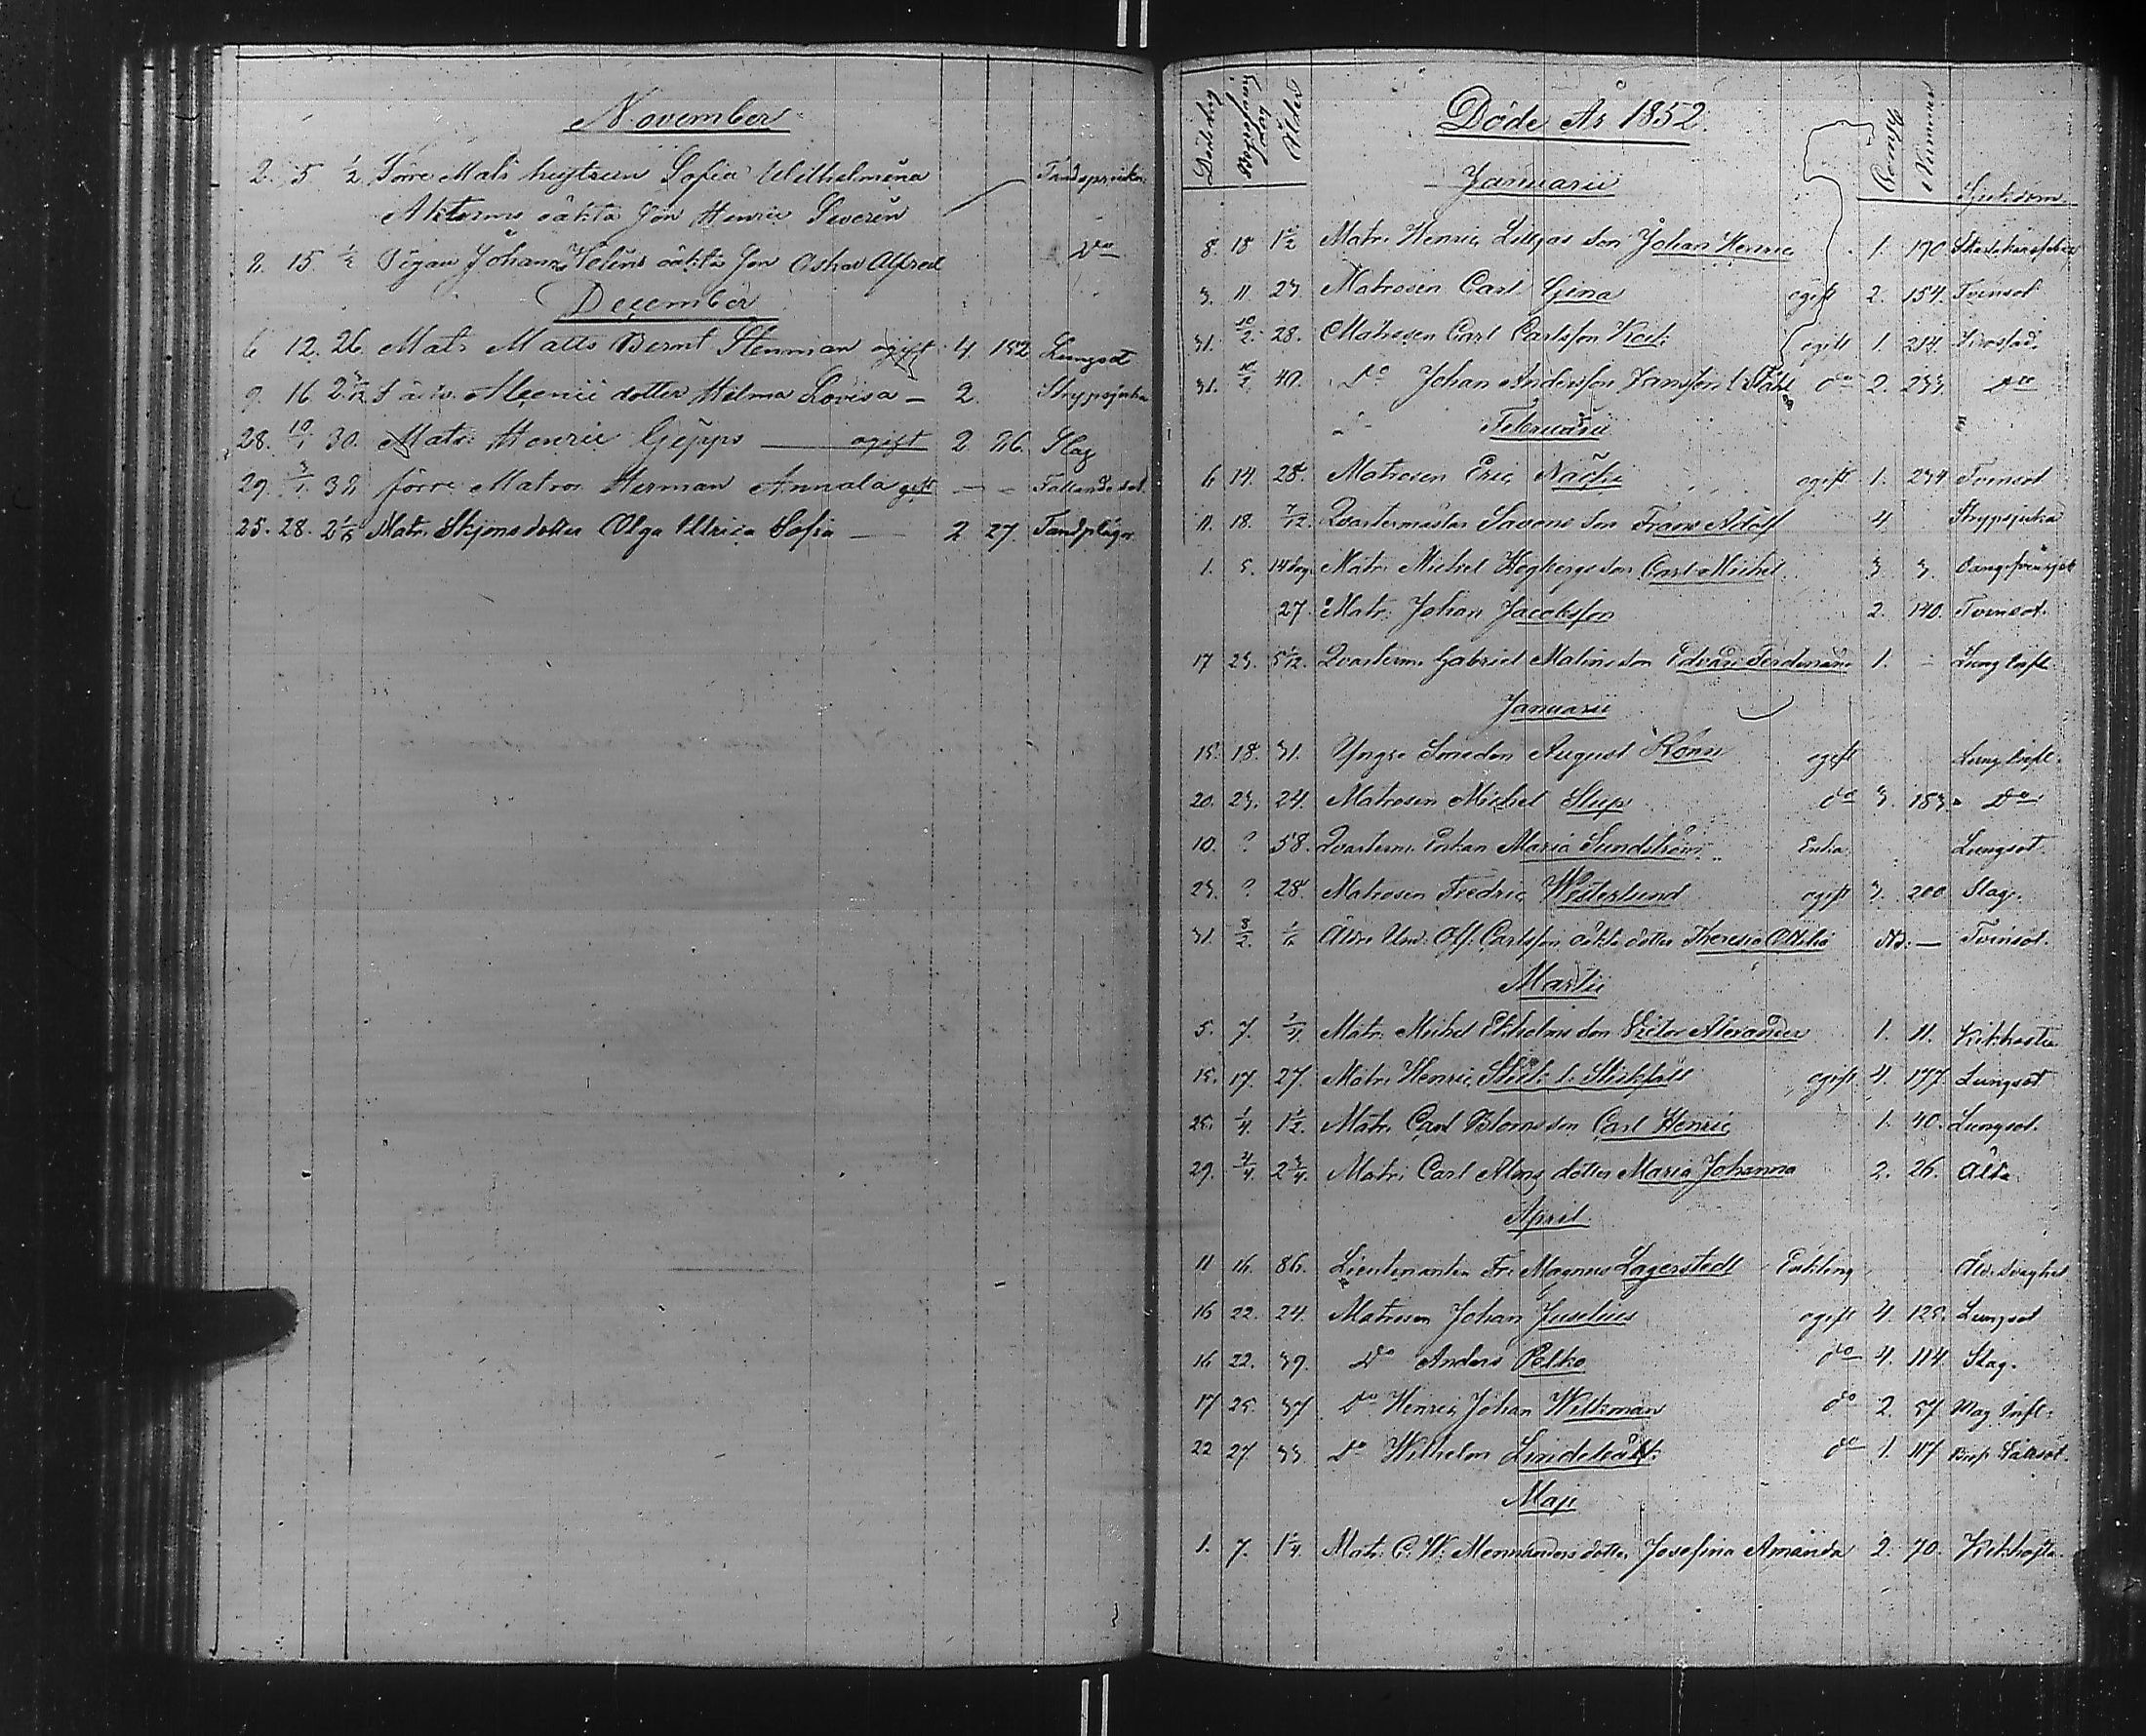 November
2. 5 ½ Förre Mats hustrun Sofia Wilhelmina
oäkta Son Henric Severin
8. 15 ½ Pigan Johanna oäkta Son Oskar Alfred Do
December
6 12. 26. Matr Matts Bernt Stenman ogift 4. 152 Lungsot
9. 16 2 3/12 dotter Hilma Lovisa — 2. Strypsjuka
28. 10/1 30. Matr: Henric Gepps ogift 2. 86. Slag
29. 3/1 38 förre Matros Herman Annala gift — — Fallandesot
25. 28. Matr. dotter Olga Ulrica Sofia — 2 27. Tandplågor
Dödsdag Begrafnings dag Ålder Döde År 1852. Comp Nummer Sjukdom
Januarii
8. 18 1½ Matr. Henric son Johan Henric 1. 170.
3. 11. 23. Matrosen Carl Gina ogift 2. 154. Tvinsot
31. 10/2. 28. Matrosen Carl Carlsson ogift 1. 214.
31. 10/2 40. Do Johan Andersson Jansson l. Ståhl do 2. 233. do
Februarii
6 14. 28. Matrosen Eric ogift 1. 234 Tvinsot
11. 18. 7/12. Qvartermästar son Frans Adolf 4. Strypsjuka
1. 5. 14 dag. Matr. Michel Högbergs son Carl Michel 3 3.
27. Matr. Johan Jacobsson 2. 140. Tvinsot.
17 23. 5/12. Qvarterm. Gabriel Malins son Edvard Ferdinand 1. – Lung Infl.
Januarii
15. 18. 31. Yngre Smeden August Rönn ogift Lung Infl.
20. 23. 24. Matrosen Michel Slup do 3. 183. Do
10. ? 58. Qvarterm. Enkan Maria Sundström Enka Lungsot.
23. ? 28 Matrosen Fredric Westerlund ogift 3. 200 Slag.
31. 8/2. Äldre Und: Off: Carlsson äkta dotter Theresia Ottilia — Tvinsot.
Martii
5. 7. Matr. Michel Ekholms son Victor Alexander 1. 11. Kikhosta
15. 17. 27. Matr. Henric ogift 4. 177 Lungsot
25. 1/4. 1½. Matr. Carl Bloms son Carl Henric 1. 40. Lungsot.
29. 4/4. 2 3/4. Matr. Carl Alms dotter Maria Johanna 2. 26.
April
11 16. 86. Lieutenanten Fr. Magnus Lagerstedt Enkling
16 22. 24. Matrosen Johan Juselius ogift 4. 125. Lungsot
16 22. 39. Do Anders Pelko do 4. 114. Slag.
17 25. 37 Do Henric Johan Wilkman do 2. 57 Mag Infl:
22 27. 33. Do Wilhelm do 1. 117
Maji
1. 7. 1¼. Matr: C. W: Mennanders dotter Josefina Amanda 2. 70. Kikhosta.